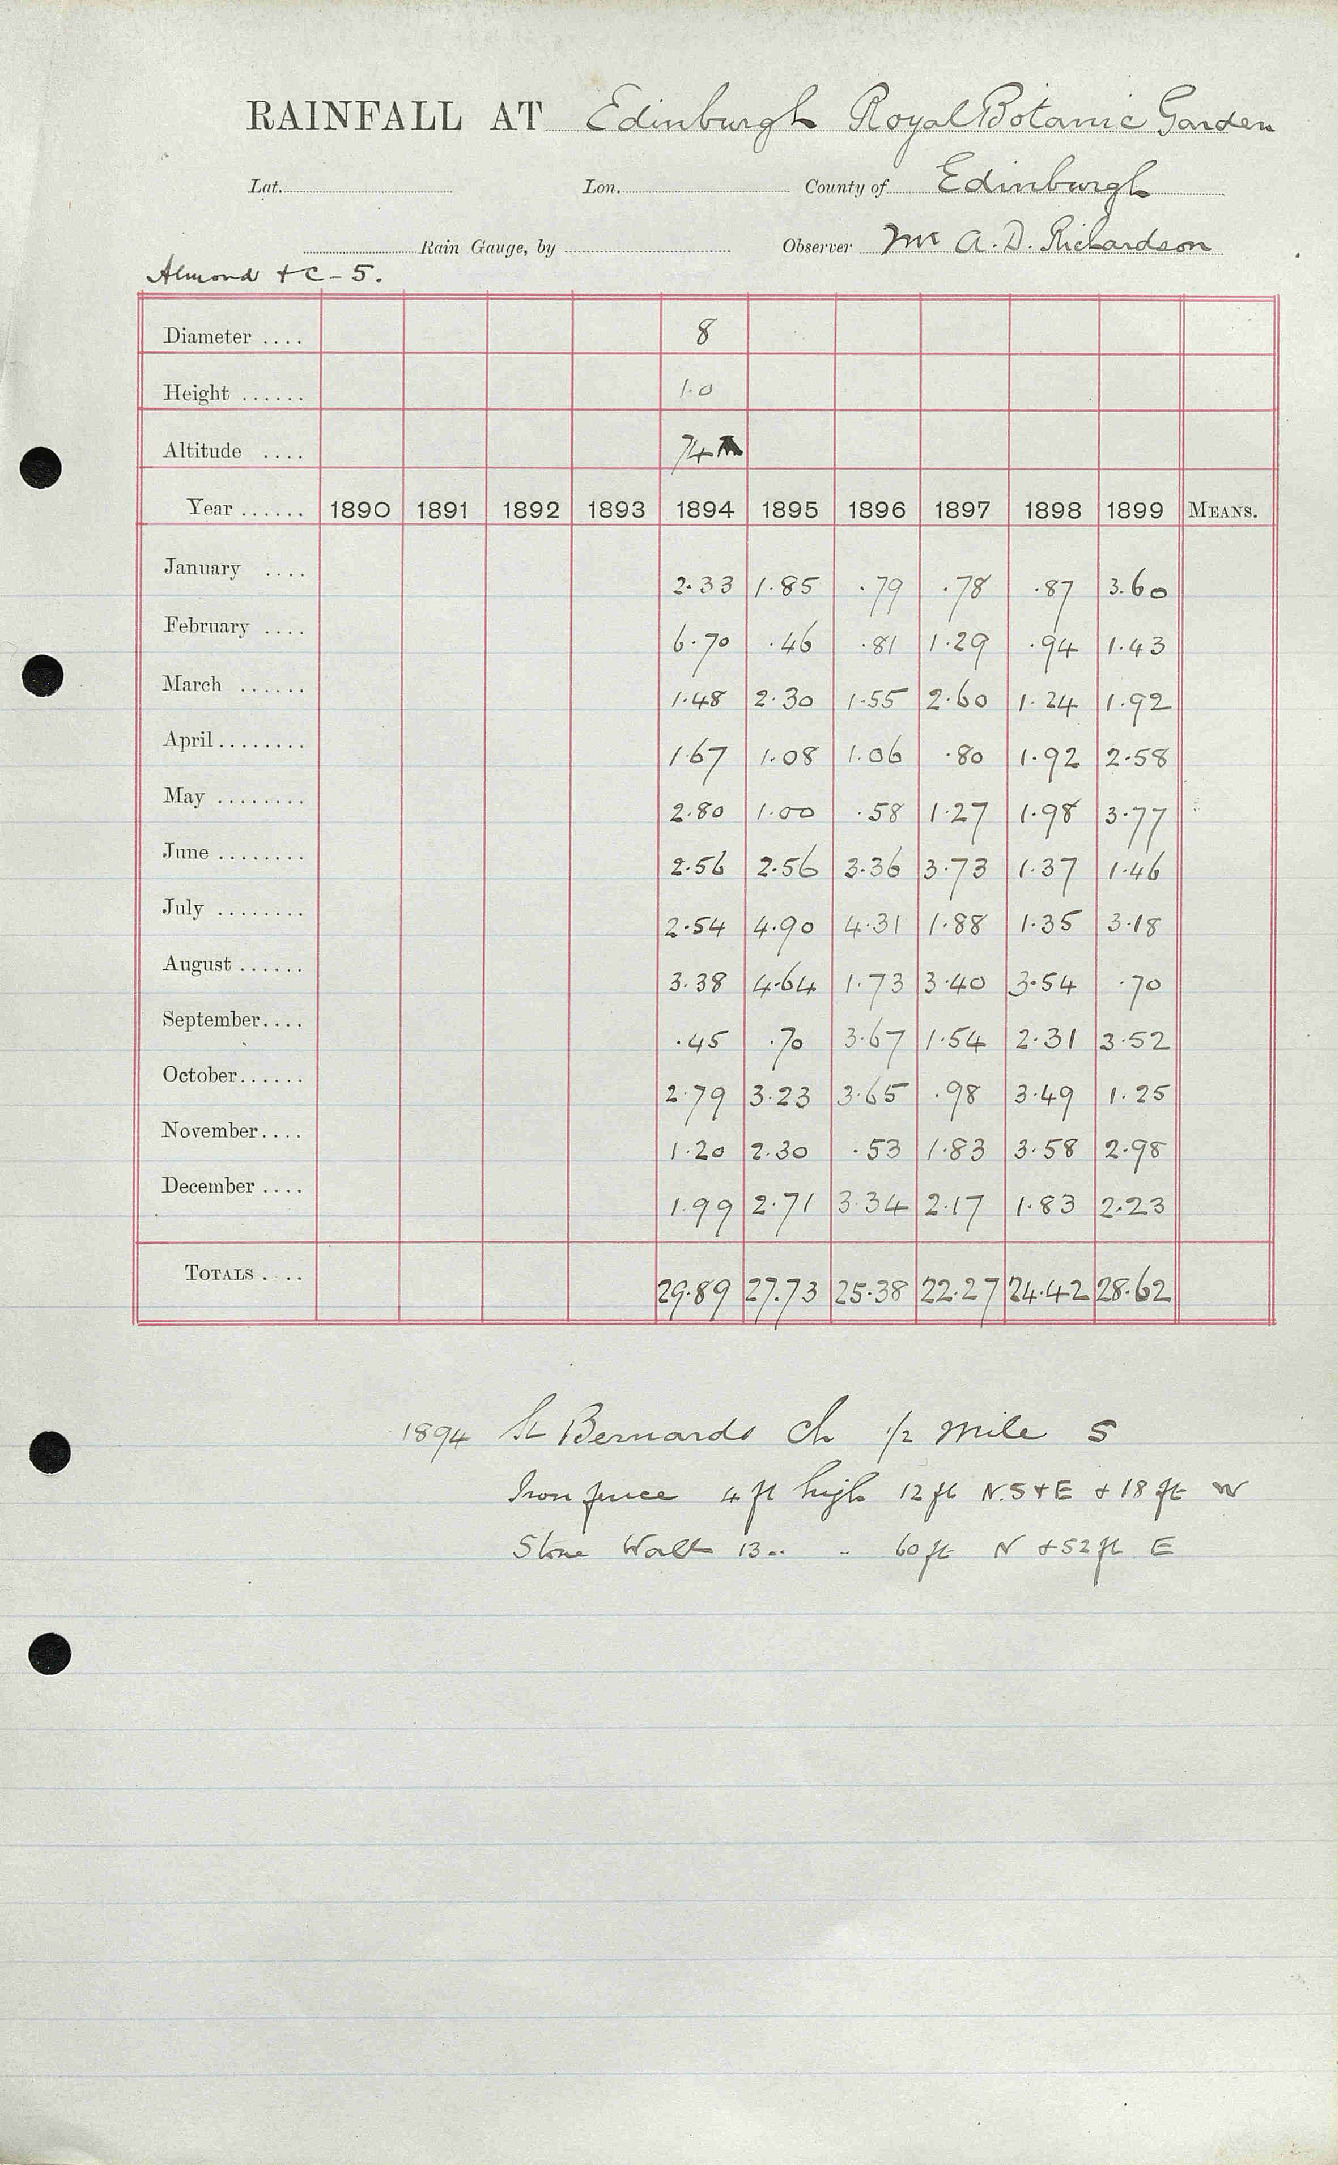 RAINFALL AT Edinburgh Royal Botanic Garden
Lat. Lon. County of Edinburgh
Rain Gauge, by Observer Mr A. D. Richardson
Almond + C - 5.
Diameter .... 8
Height ...... 1.0
Altitude .... 74
Year ...... 1890 1891 1892 1893 1894 1895 1896 1897 1898 1899 MEANS.
January .... 2.33 1.85 .79 .78 .87 3.60
February .... 6.70 .46 .81 1.29 .94 1.43
March ...... 1.48 2.30 1.55 2.60 1.24 1.92
April ........ 1.67 1.08 1.06 .80 1.92 2.58
May ........ 2.80 1.00 .58 1.27 1.98 3.77
June ........ 2.56 2.56 3.36 3.73 1.37 1.46
July ........ 2.54 4.90 4.31 1.88 1.35 3.18
August ...... 3.38 4.64 1.73 3.40 3.54 .70
September.... .45 .70 3.67 1.54 2.31 3.52
October...... 2.79 3.23 3.65 .98 3.49 1.25
November.... 1.20 2.30 .53 1.83 3.58 2.98
December .... 1.99 2.71 3.34 2.17 1.83 2.23
TOTALS .... 29.89 27.73 25.38 22.27 24.42 28.62
1894 St Bernards Ch 1/2 mile S
Iron fence 4 ft high 12 ft N.S + E + 18 ft W
Stone Wall 13 " " 60 ft N + 52 ft E